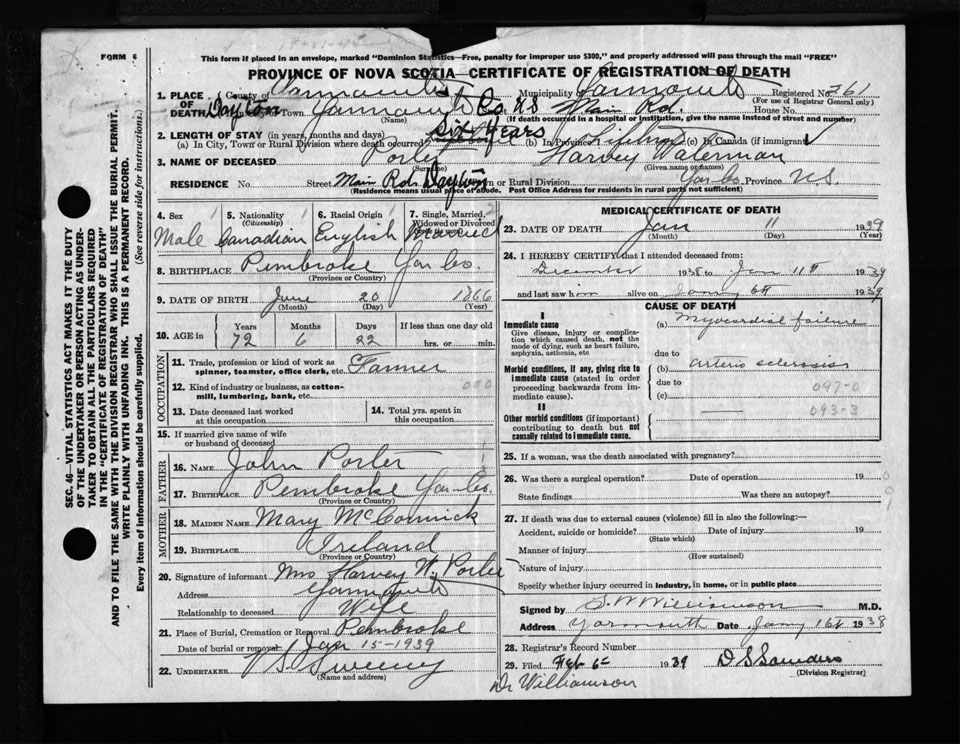 FORM 6
This form if placed in an envelope, marked "Dominion Statistics—Free, penalty for improper use $300," and properly addressed will pass through the mail "FREE"
PROVINCE OF NOVA SCOTIA—CERTIFICATE OF REGISTRATION OF DEATH
1. PLACE OF DEATH County of Yarmouth Municipality Yarmouth Registered No. 261
(For use of Registrar General only)
Dayton Town Yarmouth Co. N S Main Rd. House No.
(Name) (If death occurred in a hospital or institution, give the name instead of street and number)
2. LENGTH OF STAY (in years, months and days) six years
(a) In City, Town or Rural Division where death occurred (b) In Province Lifetime (c) In Canada (if immigrant)
3. NAME OF DECEASED Porter Harvey Waterman
(Surname) (Given name or names)
RESIDENCE No. Street Main Rd. Dayton Town or Rural Division Yar Co. Province N.S.
(Residence means usual place of abode. Post Office Address for residents in rural parts not sufficient)
4. Sex Male
5. Nationality (Citizenship) Canadian
6. Racial Origin English
7. Single, Married, Widowed or Divorced Married
8. BIRTHPLACE Pembroke Yar Co.
(Province or Country)
9. DATE OF BIRTH June 20 1866
(Month) (Day) (Year)
10. AGE in Years 72 Months 6 Days 22 If less than one day old
hrs. or min.
OCCUPATION
11. Trade, profession or kind of work as spinner, teamster, office clerk, etc. Farmer
12. Kind of industry or business, as cotton-mill, lumbering, bank, etc.
13. Date deceased last worked at this occupation
14. Total yrs. spent in this occupation
15. If married give name of wife or husband of deceased
FATHER
16. NAME John Porter
17. BIRTHPLACE Pembroke Yar Co.
(Province or Country)
MOTHER
18. MAIDEN NAME Mary McCormick
19. BIRTHPLACE Ireland
(Province or Country)
20. Signature of informant Mrs Harvey W. Porter
Address Yarmouth
Relationship to deceased Wife
21. Place of Burial, Cremation or Removal Pembroke
Date of burial or removal Jan 15-1939
22. UNDERTAKER V S Sweeny
(Name and address)
MEDICAL CERTIFICATE OF DEATH
23. DATE OF DEATH Jan 11 1939
(Month) (Day) (Year)
24. I HEREBY CERTIFY that I attended deceased from:
December 1938 to Jan 11th 1939
and last saw him alive on Jany 6th 1939
CAUSE OF DEATH
I
Immediate cause
Give disease, injury or complication which caused death, not the mode of dying, such as heart failure, asphyxia, asthenia, etc
(a) Myocardial failure
due to
Morbid conditions, if any, giving rise to immediate cause (stated in order proceeding backwards from immediate cause).
(b) arterio sclerosis
due to 097-0
(c)
093-3
II
Other morbid conditions (if important) contributing to death but not causally related to immediate cause.
25. If a woman, was the death associated with pregnancy?
26. Was there a surgical operation? Date of operation 19
State findings Was there an autopsy?
27. If death was due to external causes (violence) fill in also the following:
Accident, suicide or homicide? Date of injury 19
(State which)
Manner of injury
(How sustained)
Nature of injury
Specify whether injury occurred in industry, in home, or in public place
Signed by S. W Williamson M.D.
Address Yarmouth Date Jany 16th 1938
28. Registrar's Record Number
29. Filed Feb 6th 1939 D S Saunders
(Division Registrar)
Dr Williamson
SEC. 46—VITAL STATISTICS ACT MAKES IT THE DUTY OF THE UNDERTAKER OR PERSON ACTING AS UNDERTAKER TO OBTAIN ALL THE PARTICULARS REQUIRED IN THE "CERTIFICATE OF REGISTRATION OF DEATH" AND TO FILE THE SAME WITH THE DIVISION REGISTRAR WHO SHALL ISSUE THE BURIAL PERMIT.
WRITE PLAINLY WITH UNFADING INK. THIS IS A PERMANENT RECORD.
Every item of information should be carefully supplied. (See reverse side for instructions.)